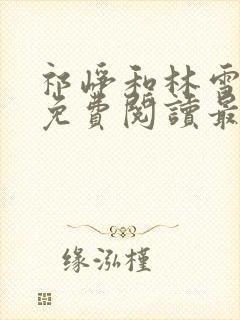 祁崢和林雪
免費閱讀最
缘泓槿